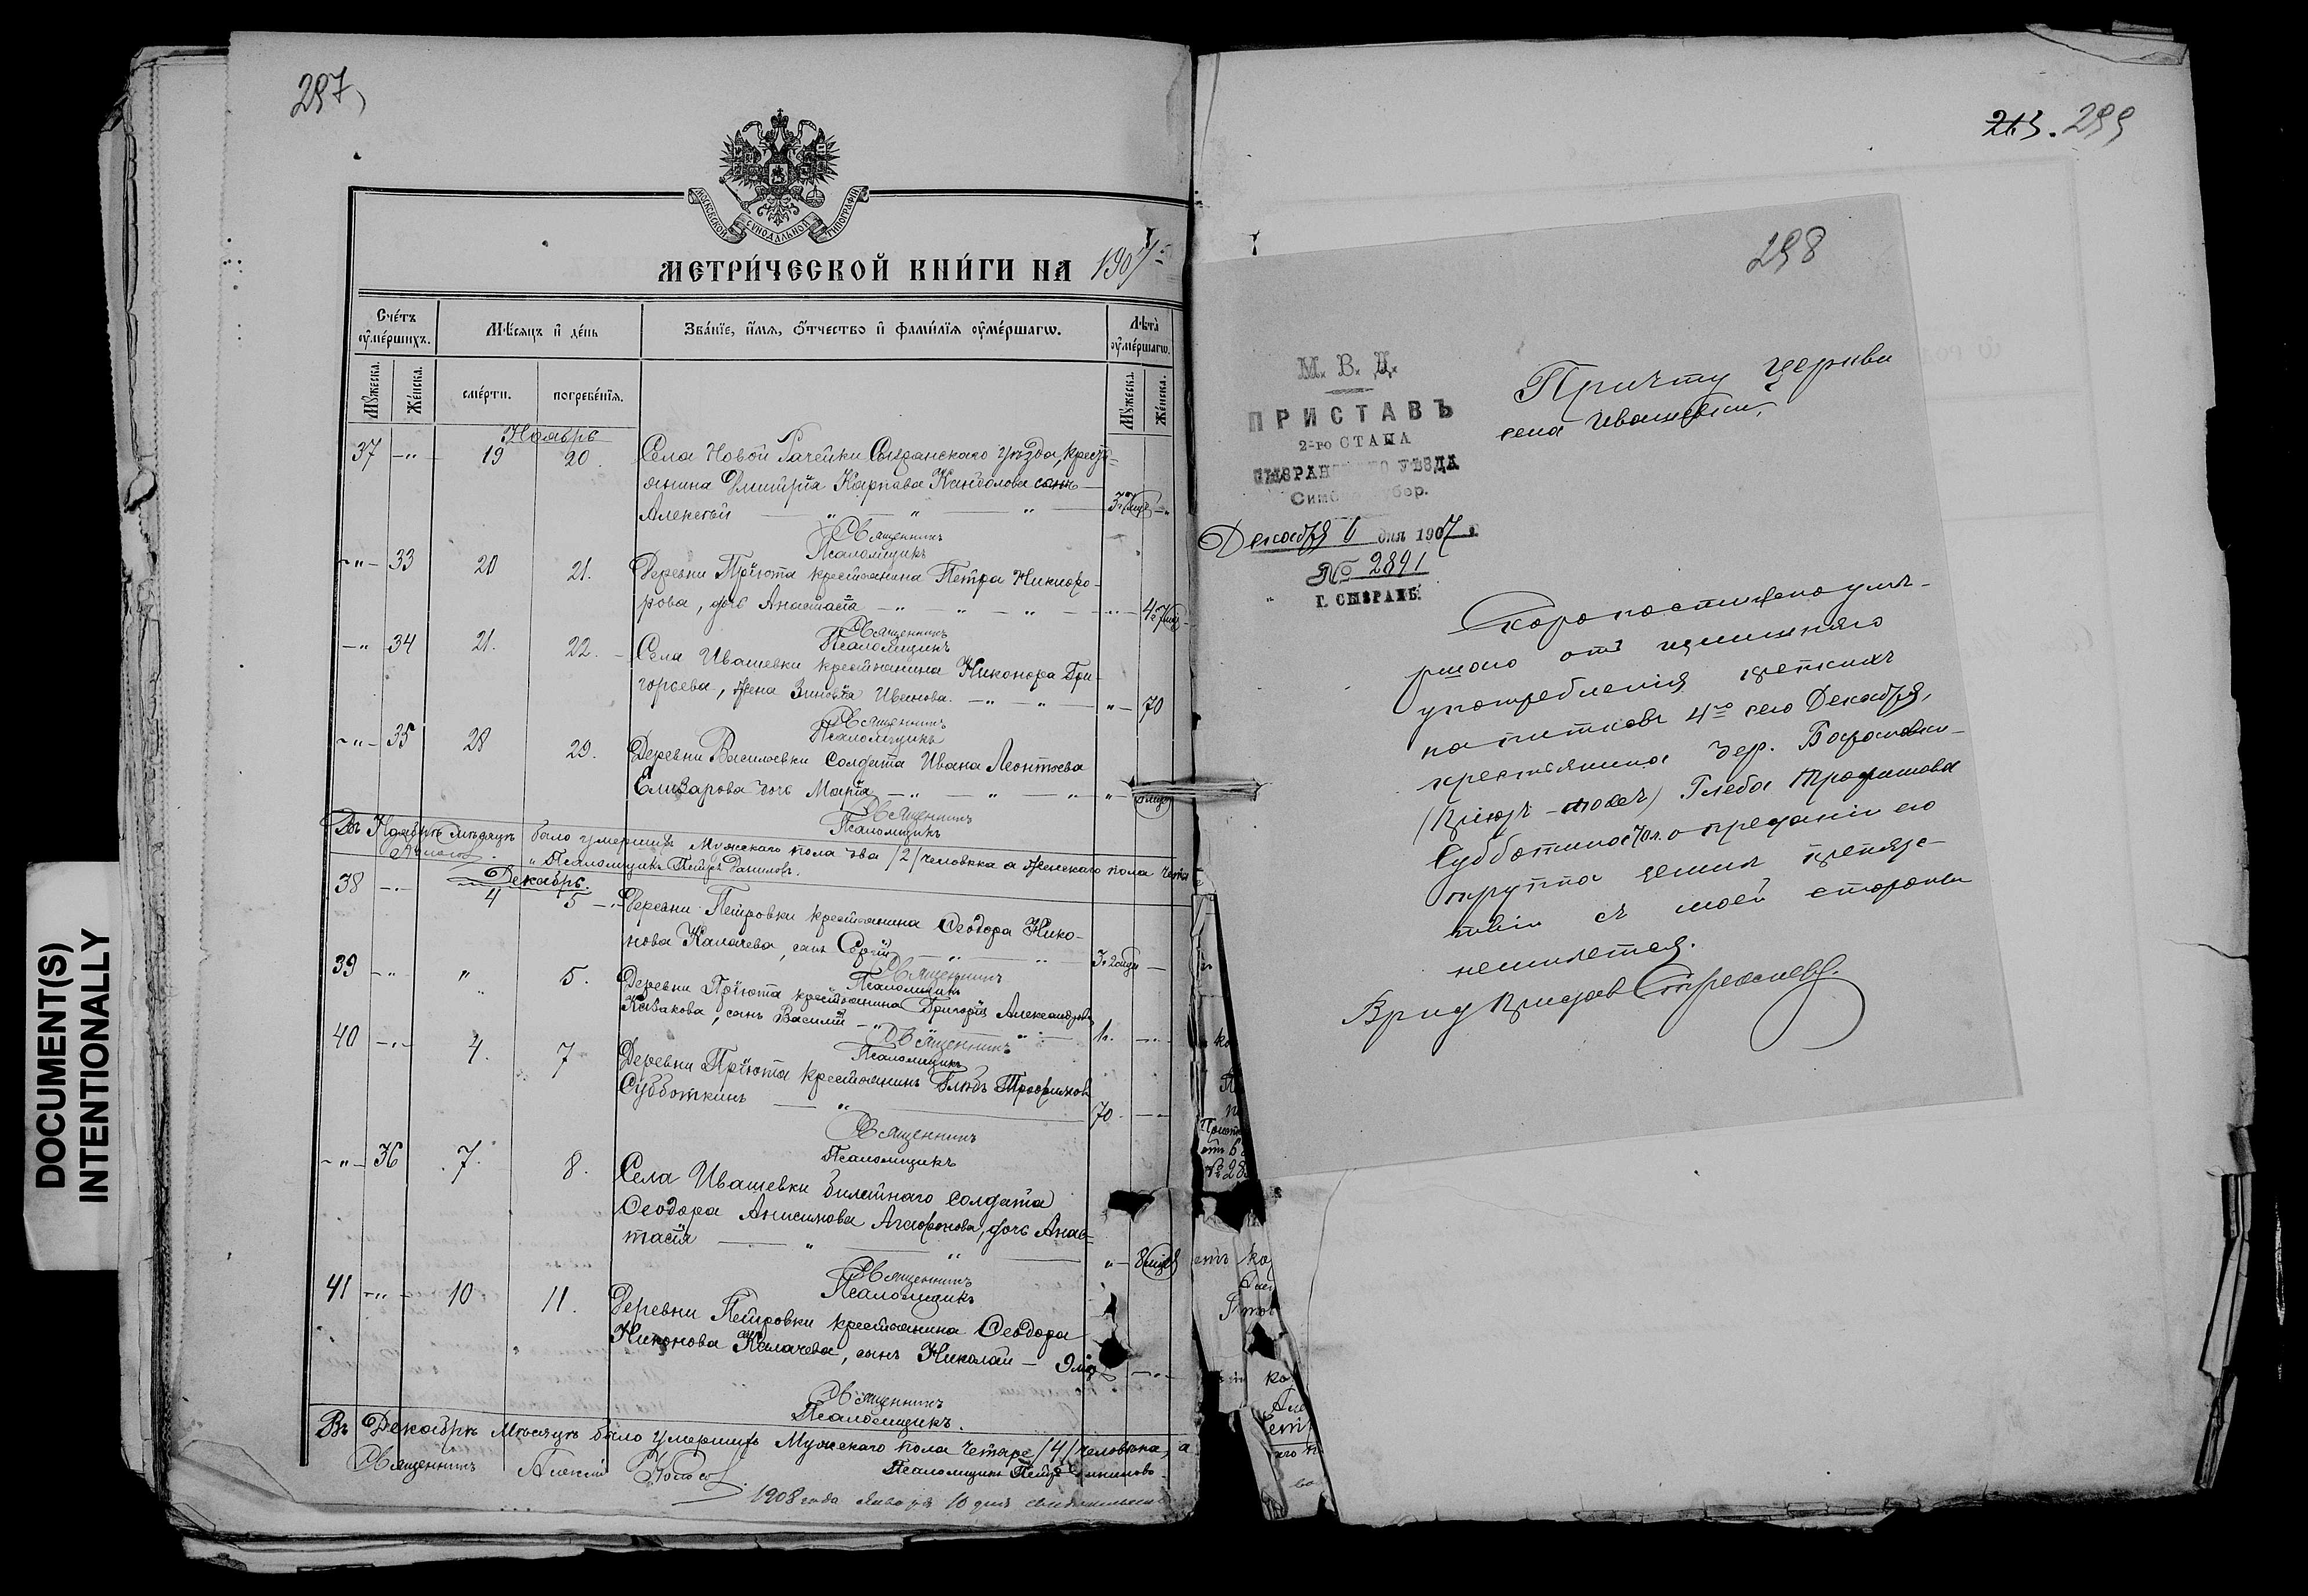 DOCUMENT(S)
INTENTIONALLY
297
МОСКОВСКОЙ СѴНОДАЛЬНОЙ ТИПОГРАФІИ
МЕТРИ́ЧЕСКОЙ КНИ́ГИ НА 1907
Сче́тъ ᲂу҆ме́ршихъ.
Мѣ́сяцъ и҆ де́нь
Зва́нїе, и҆́мѧ, ѻ҆́тчество и҆ фами́лїѧ ᲂу҆ме́ршагѡ.
Лѣта̀ ᲂу҆ме́ршагѡ.
Мꙋ́жеска.
Же́нска.
сме́рти.
погребе́нїѧ.
Мꙋ́жеска.
Же́нска.
Ноябрь
37 19 20. Села Новой Рачейки Сызранскаго уѣзда, крестъ-
янина Димитрія Карпова сынъ
Алексѣй
Священникъ
Псаломщикъ
33 20 21. Деревни Пріюта крестьянина Петра Никифо-
рова, дочь Анастасія
Священникъ
Псаломщикъ
34 21. 22. Села Ивашевки крестьянина Никонора Гри-
горьева, жена Зиновія Иванова. 70
Священникъ
Псаломщикъ
35 28 29. Деревни Васильевки солдата Ивана Леонтьева
Елизарова дочь Марія
Священникъ
Псаломщикъ
Въ Ноябрѣ мѣсяцѣ было умершихъ Мужескаго пола два /2/ человѣка а Женскаго пола
Псаломщикъ Петръ Данилов.
Декабрь.
38 4 5 Деревни Петровки крестьянина Ѳеодора Нико-
нова Калачева, сынъ Сергій
Священникъ
Псаломщикъ
39 " 5. Деревни Пріюта крестьянина Григорія Александрова
сынъ Василій 1
Священникъ
Псаломщикъ
40 4. 7 Деревни Пріюта крестьянинъ Глѣбъ Трофимовъ
Субботкинъ 70
Священникъ
Псаломщикъ
36 7. 8. Села Ивашевки билетнаго солдата
Ѳеодора Анисимова Агафонова, дочь Анас-
тасія
Священникъ
Псаломщикъ
41 10 11. Деревни Петровки крестьянина Ѳеодора
Никонова Калачева, сынъ Николай
Священникъ
Псаломщикъ.
Въ Декабрѣ мѣсяцѣ было умершихъ Мужескаго пола четыре /4/ человѣка, а
Священникъ Алексій
Псаломщикъ Петръ
1908 года Января 10 дня
213. 299
298
М. В. Д.
ПРИСТАВЪ
2-го СТАНА
СЫЗРАНСКАГО УѢЗДА
Симб. губер.
Декабря 6 дня 1907 г.
№ 2891
Г. СЫЗРАНЬ.
Причту церкви
села Ивашевки,
Скоропостижно уме-
ршаго отъ излишняго
употребления крепкихъ
напитковъ 4го сего Декабря,
крестьянина дер. Барановки
(Пріютъ-тожъ) Глеба Трофимова
Субботкина 70 л. о преданіи его
трупа земле препятс-
твия съ моей стороны
неимеется.